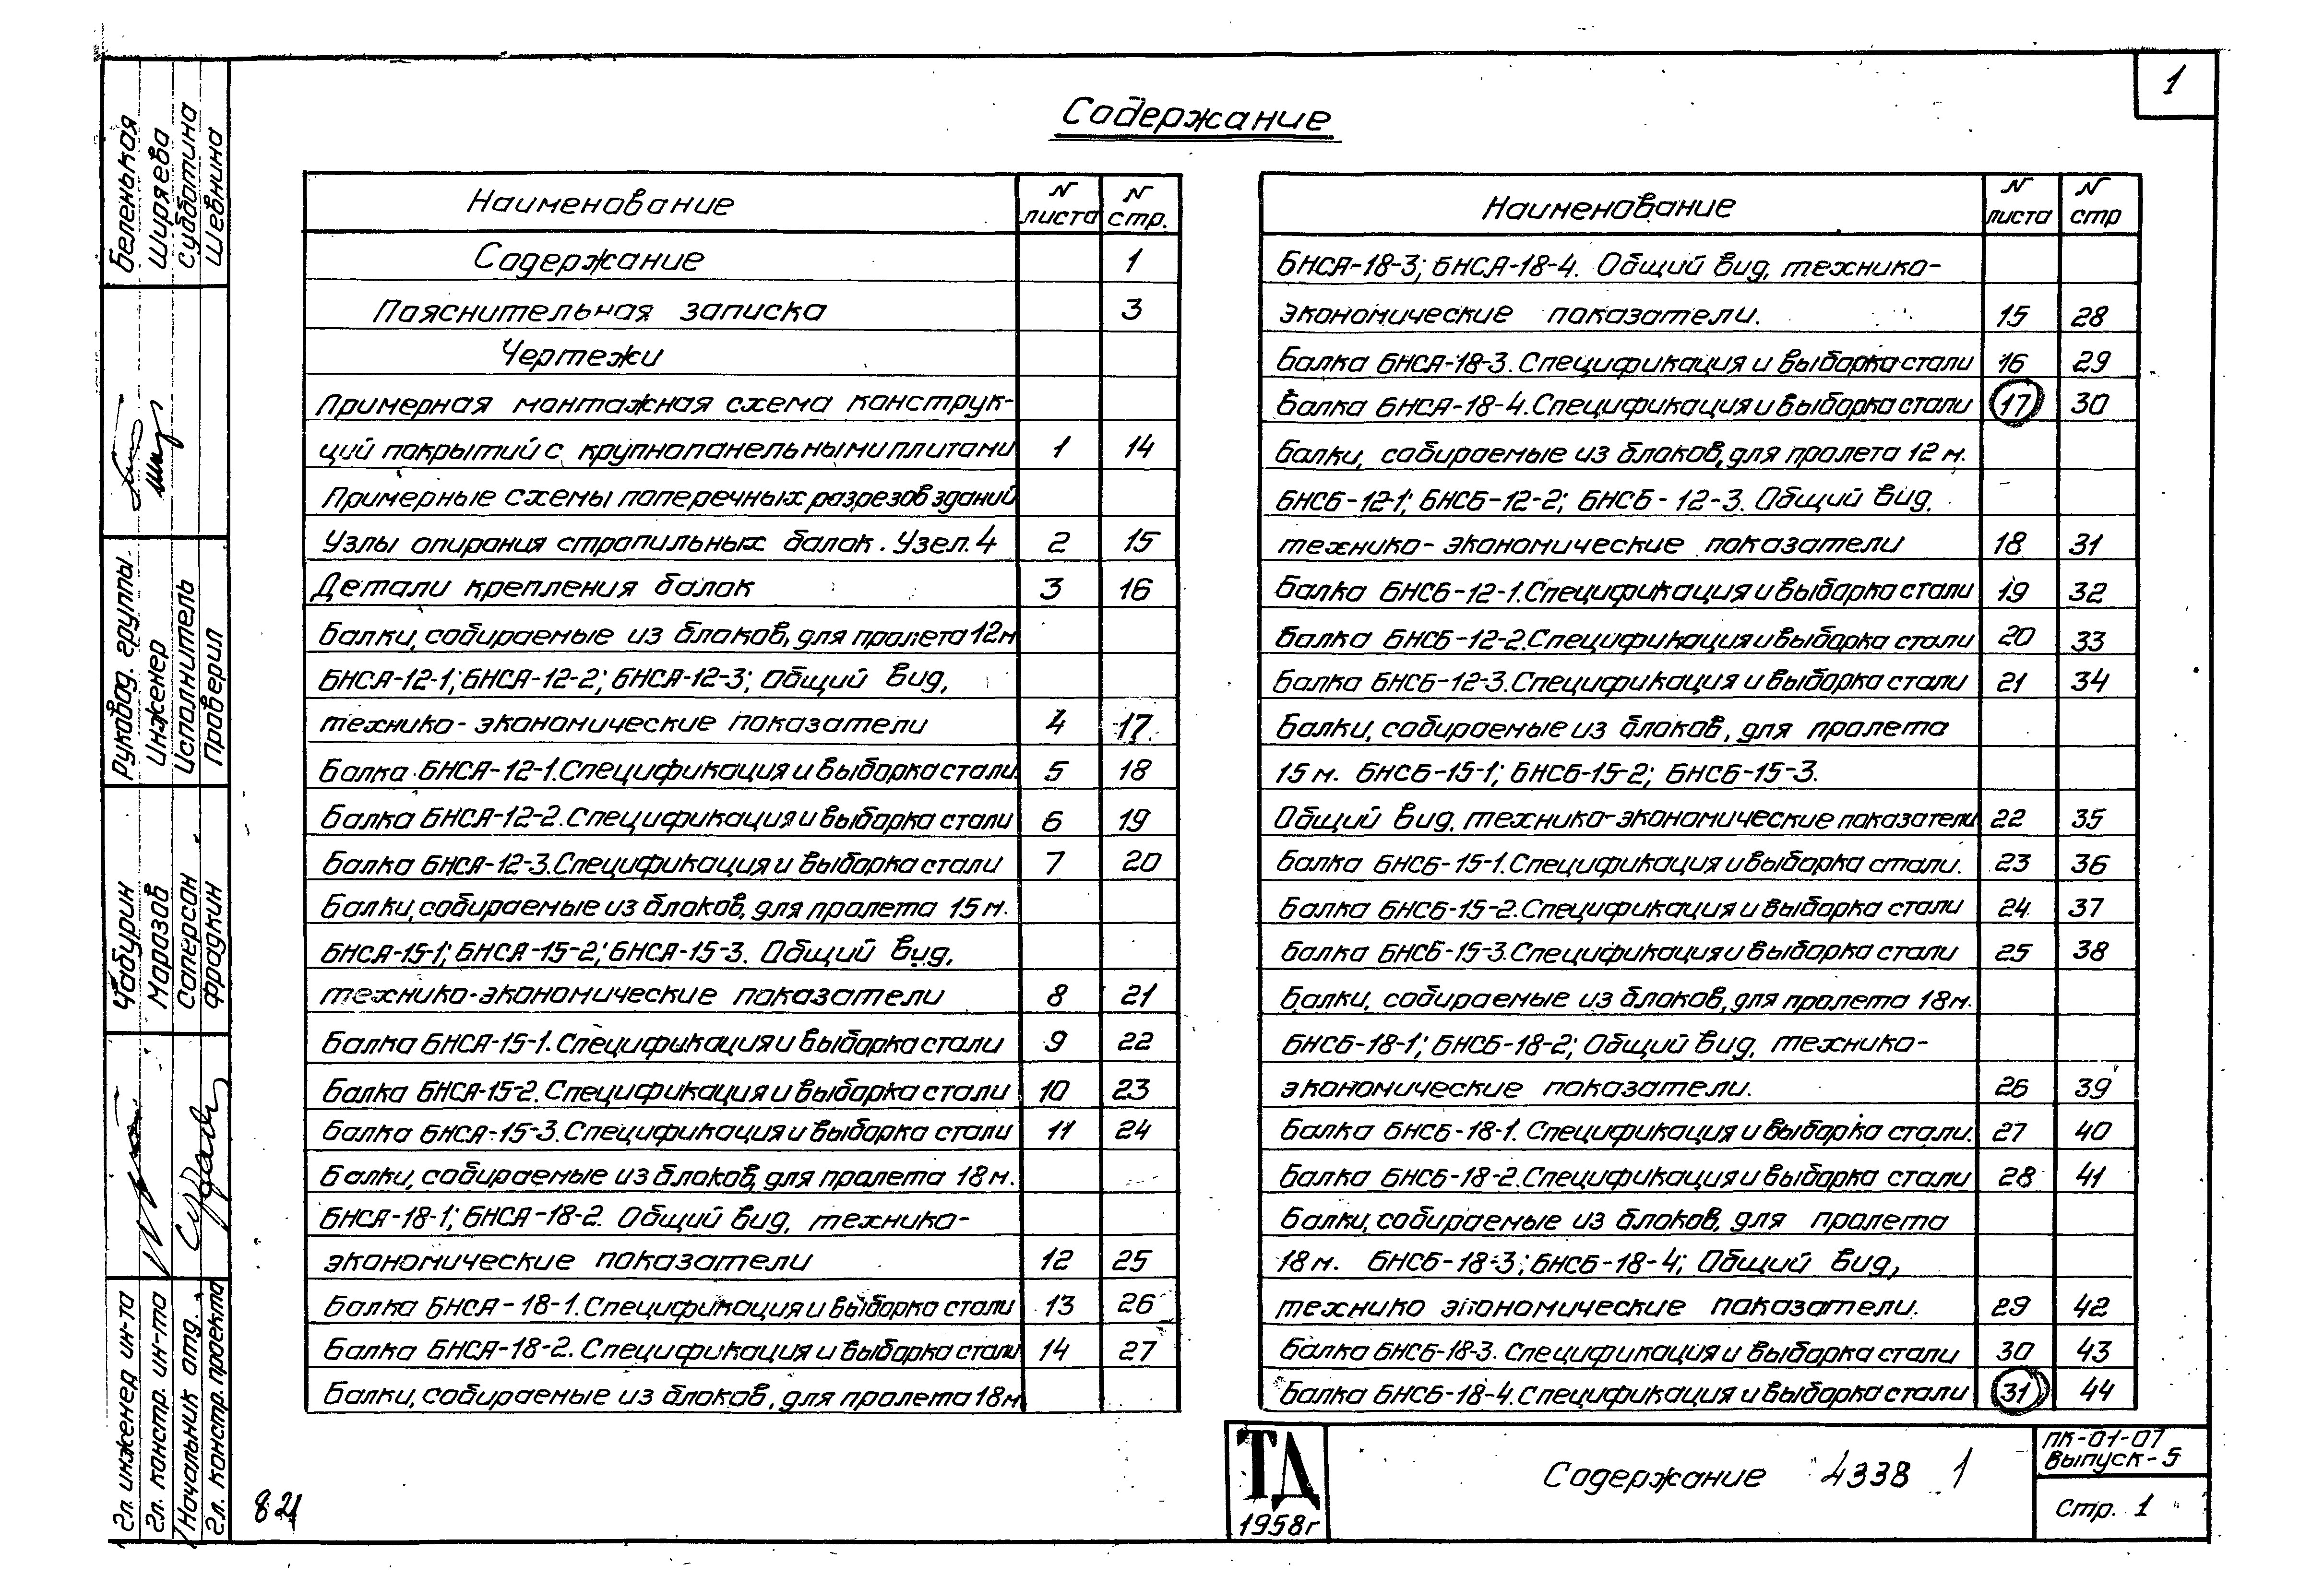 1
Содержание
Наименование N листа N стр.
Содержание 1
Пояснительная записка 3
Чертежи
Примерная монтажная схема конструк-
ций покрытий с крупнопанельными плитами 1 14
Примерные схемы поперечных разрезов зданий
Узлы опирания стропильных балок. Узел. 4 2 15
Детали крепления балок 3 16
Балки, собираемые из блоков, для пролета 12м
БНСА-12-1; БНСА-12-2; БНСА-12-3; Общий вид,
технико-экономические показатели 4 17
Балка БНСА-12-1. Спецификация и выборка стали 5 18
Балка БНСА-12-2. Спецификация и выборка стали 6 19
Балка БНСА-12-3. Спецификация и выборка стали 7 20
Балки, собираемые из блоков, для пролета 15м.
БНСА-15-1; БНСА-15-2; БНСА-15-3. Общий вид,
технико-экономические показатели 8 21
Балка БНСА-15-1. Спецификация и выборка стали 9 22
Балка БНСА-15-2. Спецификация и выборка стали 10 23
Балка БНСА-15-3. Спецификация и выборка стали 11 24
Балки, собираемые из блоков, для пролета 18м.
БНСА-18-1; БНСА-18-2. Общий вид, технико-
экономические показатели 12 25
Балка БНСА-18-1. Спецификация и выборка стали 13 26
Балка БНСА-18-2. Спецификация и выборка стали 14 27
Балки, собираемые из блоков, для пролета 18м
Наименование N листа N стр
БНСА-18-3; БНСА-18-4. Общий вид, технико-
экономические показатели. 15 28
Балка БНСА-18-3. Спецификация и выборка стали 16 29
Балка БНСА-18-4. Спецификация и выборка стали 17 30
Балки, собираемые из блоков, для пролета 12м.
БНСБ-12-1; БНСБ-12-2; БНСБ-12-3. Общий вид,
технико-экономические показатели 18 31
Балка БНСБ-12-1. Спецификация и выборка стали 19 32
Балка БНСБ-12-2. Спецификация и выборка стали 20 33
Балка БНСБ-12-3. Спецификация и выборка стали 21 34
Балки, собираемые из блоков, для пролета
15м. БНСБ-15-1; БНСБ-15-2; БНСБ-15-3.
Общий вид, технико-экономические показатели 22 35
Балка БНСБ-15-1. Спецификация и выборка стали. 23 36
Балка БНСБ-15-2. Спецификация и выборка стали 24 37
Балка БНСБ-15-3. Спецификация и выборка стали 25 38
Балки, собираемые из блоков, для пролета 18м.
БНСБ-18-1; БНСБ-18-2; Общий вид, технико-
экономические показатели. 26 39
Балка БНСБ-18-1. Спецификация и выборка стали. 27 40
Балка БНСБ-18-2. Спецификация и выборка стали 28 41
Балки, собираемые из блоков, для пролета
18м. БНСБ-18-3; БНСБ-18-4; Общий вид,
технико экономические показатели. 29 42
Балка БНСБ-18-3. Спецификация и выборка стали 30 43
Балка БНСБ-18-4. Спецификация и выборка стали 31 44
ТД
1958г
Содержание 4338 1
ПК-01-07
Выпуск-5
Стр. 1
821
Гл. инженер ин-та Чабурин Руковод. группы. Беленькая
Гл. констр. ин-та Морозов Инженер Ширяева
Начальник отд. Саперсон Исполнитель Субботина
Гл. констр. проекта Фрадкин Проверил Шевнина